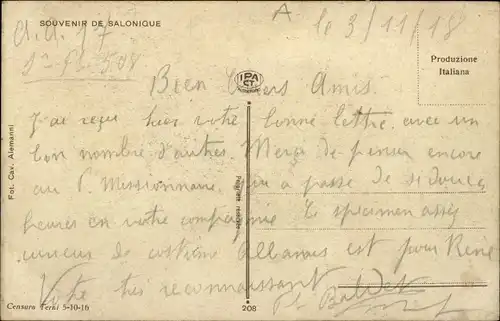 SOUVENIR DE SALONIQUE
A
le 3/11/18
Produzione
Italiana
IPA
CT
Bien Chers Amis.
J'ai reçu hier votre bonne lettre avec un
bon nombre d'autres. Merci de penser encore
au P. Missionnaire qui a passé de si douces
heures en votre compagnie Ce specimen assez
curieux de costume Albanais est pour René
Votre très reconnaissant
Fot. Cav. Alemanni
Censura Terni 5-10-16
208